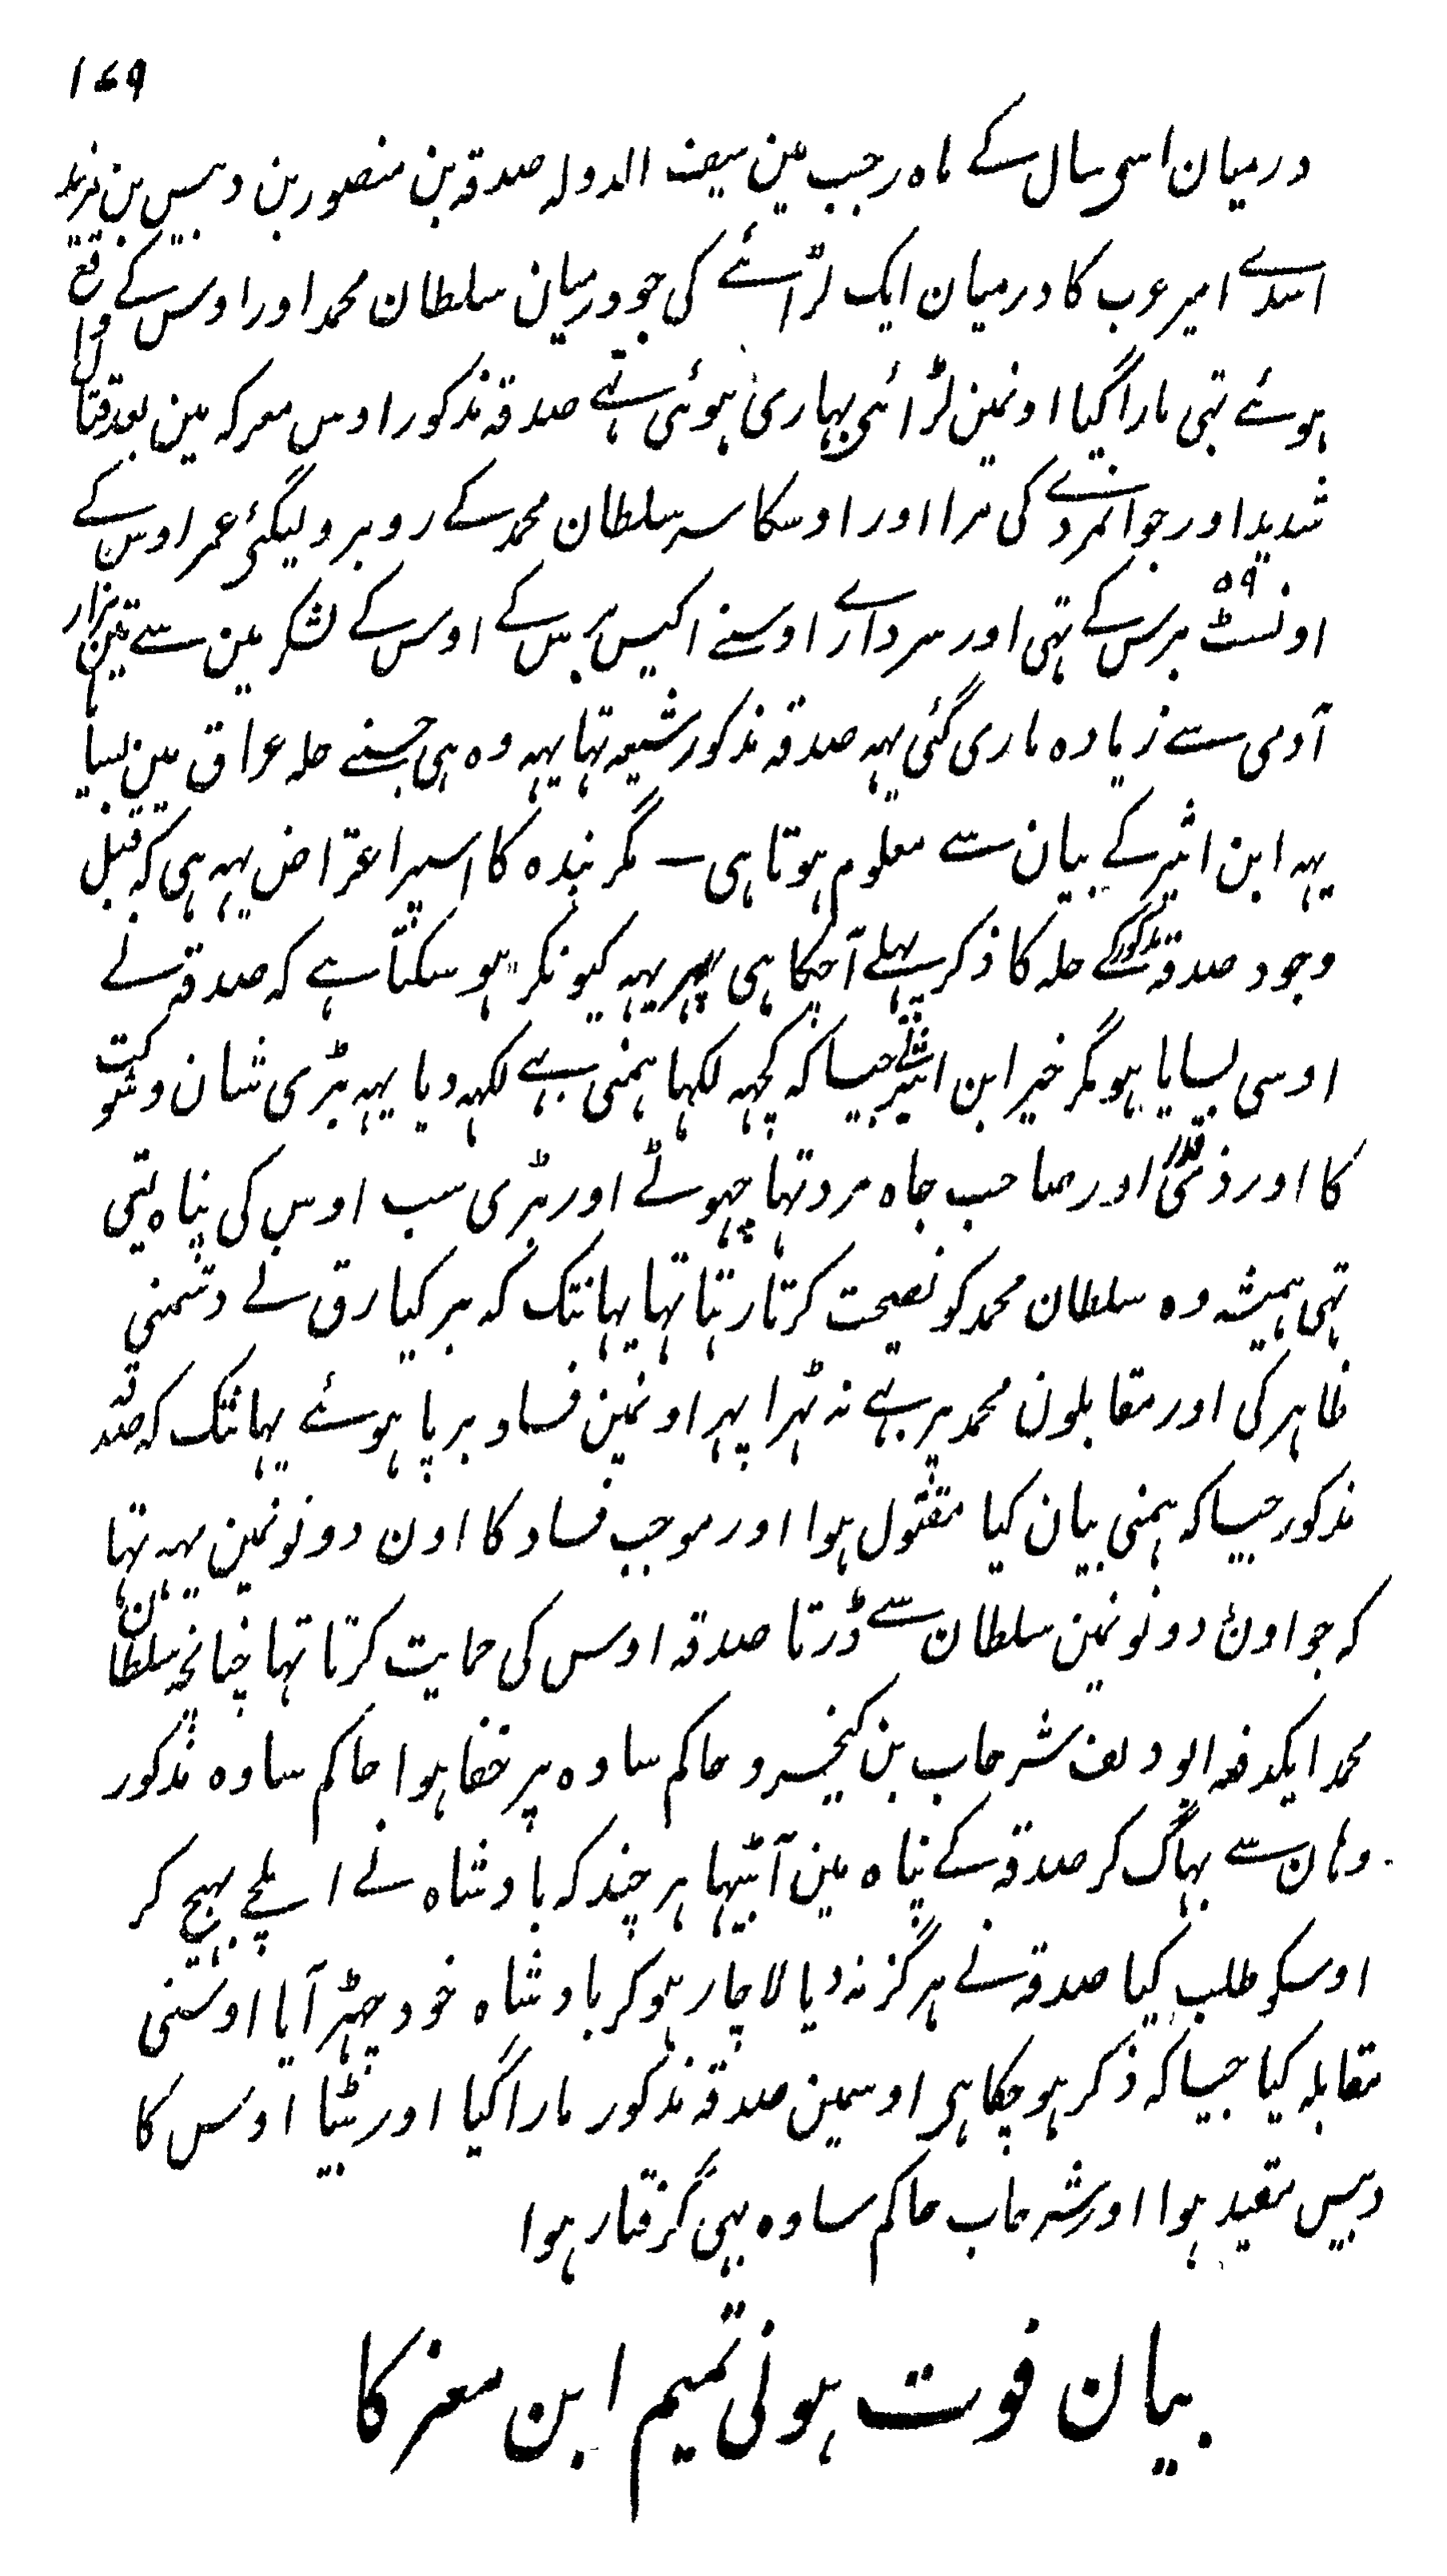 ۱۷۹
درمیان اسی سال کے ماہ رجب مین سیف الدولہ صدقہ بن منصور بن دبیس بن مزید
اسدے امیر عرب کا درمیان ایک لڑائے کی جو درمیان سلطان محمد اور اوس کے واقع
ہوئے تہی مارا گیا اونمین لڑائی بہاری ہوئی تہے صدقہ مذکور اوس معرکہ مین بعد قتال
شدید اور جوانمردے کی مرا اور اوسکا سر سلطان محمد کے روبرو لیگئی عمر اوس کے
اونسٹ ۵۹ برس کے تہی اور سردارے اوسنے اکیس برس کے اوس کے لشکر مین سے تین ہزار
آدمی سے زیادہ ماری گئی یہہ صدقہ مذکور شیعہ تہا یہہ وہ ہی جسنے حلہ عراق مین بسایا
یہہ ابن اثیر کے بیان سے معلوم ہوتا ہی — مگر بندہ کا اسپر اعتراض یہہ ہی کہ قبل
وجود صدقہ مذکور کے حلہ کا ذکر پہلے آچکا ہی پہر یہہ کیونکر ہو سکتا ہے کہ صدقہ نے
اوسی بسایا ہو مگر خیر ابن اثیر نے جیسا کہ کچہہ لکہا ہمنی بہے لکہہ دیا یہہ بڑی شان و شوکت
کا اور ذی قدر اور صاحب جاہ مرد تہا چہوٹے اور بڑی سب اوس کی پناہ لیتی
تہی ہمیشہ وہ سلطان محمد کو نصیحت کرتا رہتا تہا یہانتک کہ برکیارق نے دشمنی
ظاہر کی اور مقابلون محمد پر بہے نہ ٹہرا پہر اونمین فساد برپا ہوئے یہانتک کہ صدقہ
مذکور جیسا کہ ہمنی بیان کیا مقتول ہوا اور موجب فساد کا اون دونو نمین یہہ تہا
کہ جو اون دونو نمین سلطان سے ڈرتا صدقہ اوس کی حمایت کرتا تہا چنانچہ سلطان
محمد ایکدفعہ ابو دلف شرحاب بن کیخسرو حاکم ساوہ پر خفا ہوا حاکم ساوہ مذکور
وہان سے بہاگ کر صدقہ کے پناہ مین آبیٹہا ہر چند کہ بادشاہ نے ایلچے بہیج کر
اوسکو طلب کیا صدقہ نے ہرگز نہ دیا لاچار ہو کر بادشاہ خود چہڑ آیا اوسنی
مقابلہ کیا جیسا کہ ذکر ہو چکا ہی اوسمین صدقہ مذکور مارا گیا اور بیٹا اوس کا
دبیس مقید ہوا اور شرحاب حاکم ساوہ بہی گرفتار ہوا
بیان فوت ہونی تمیم ابن معز کا